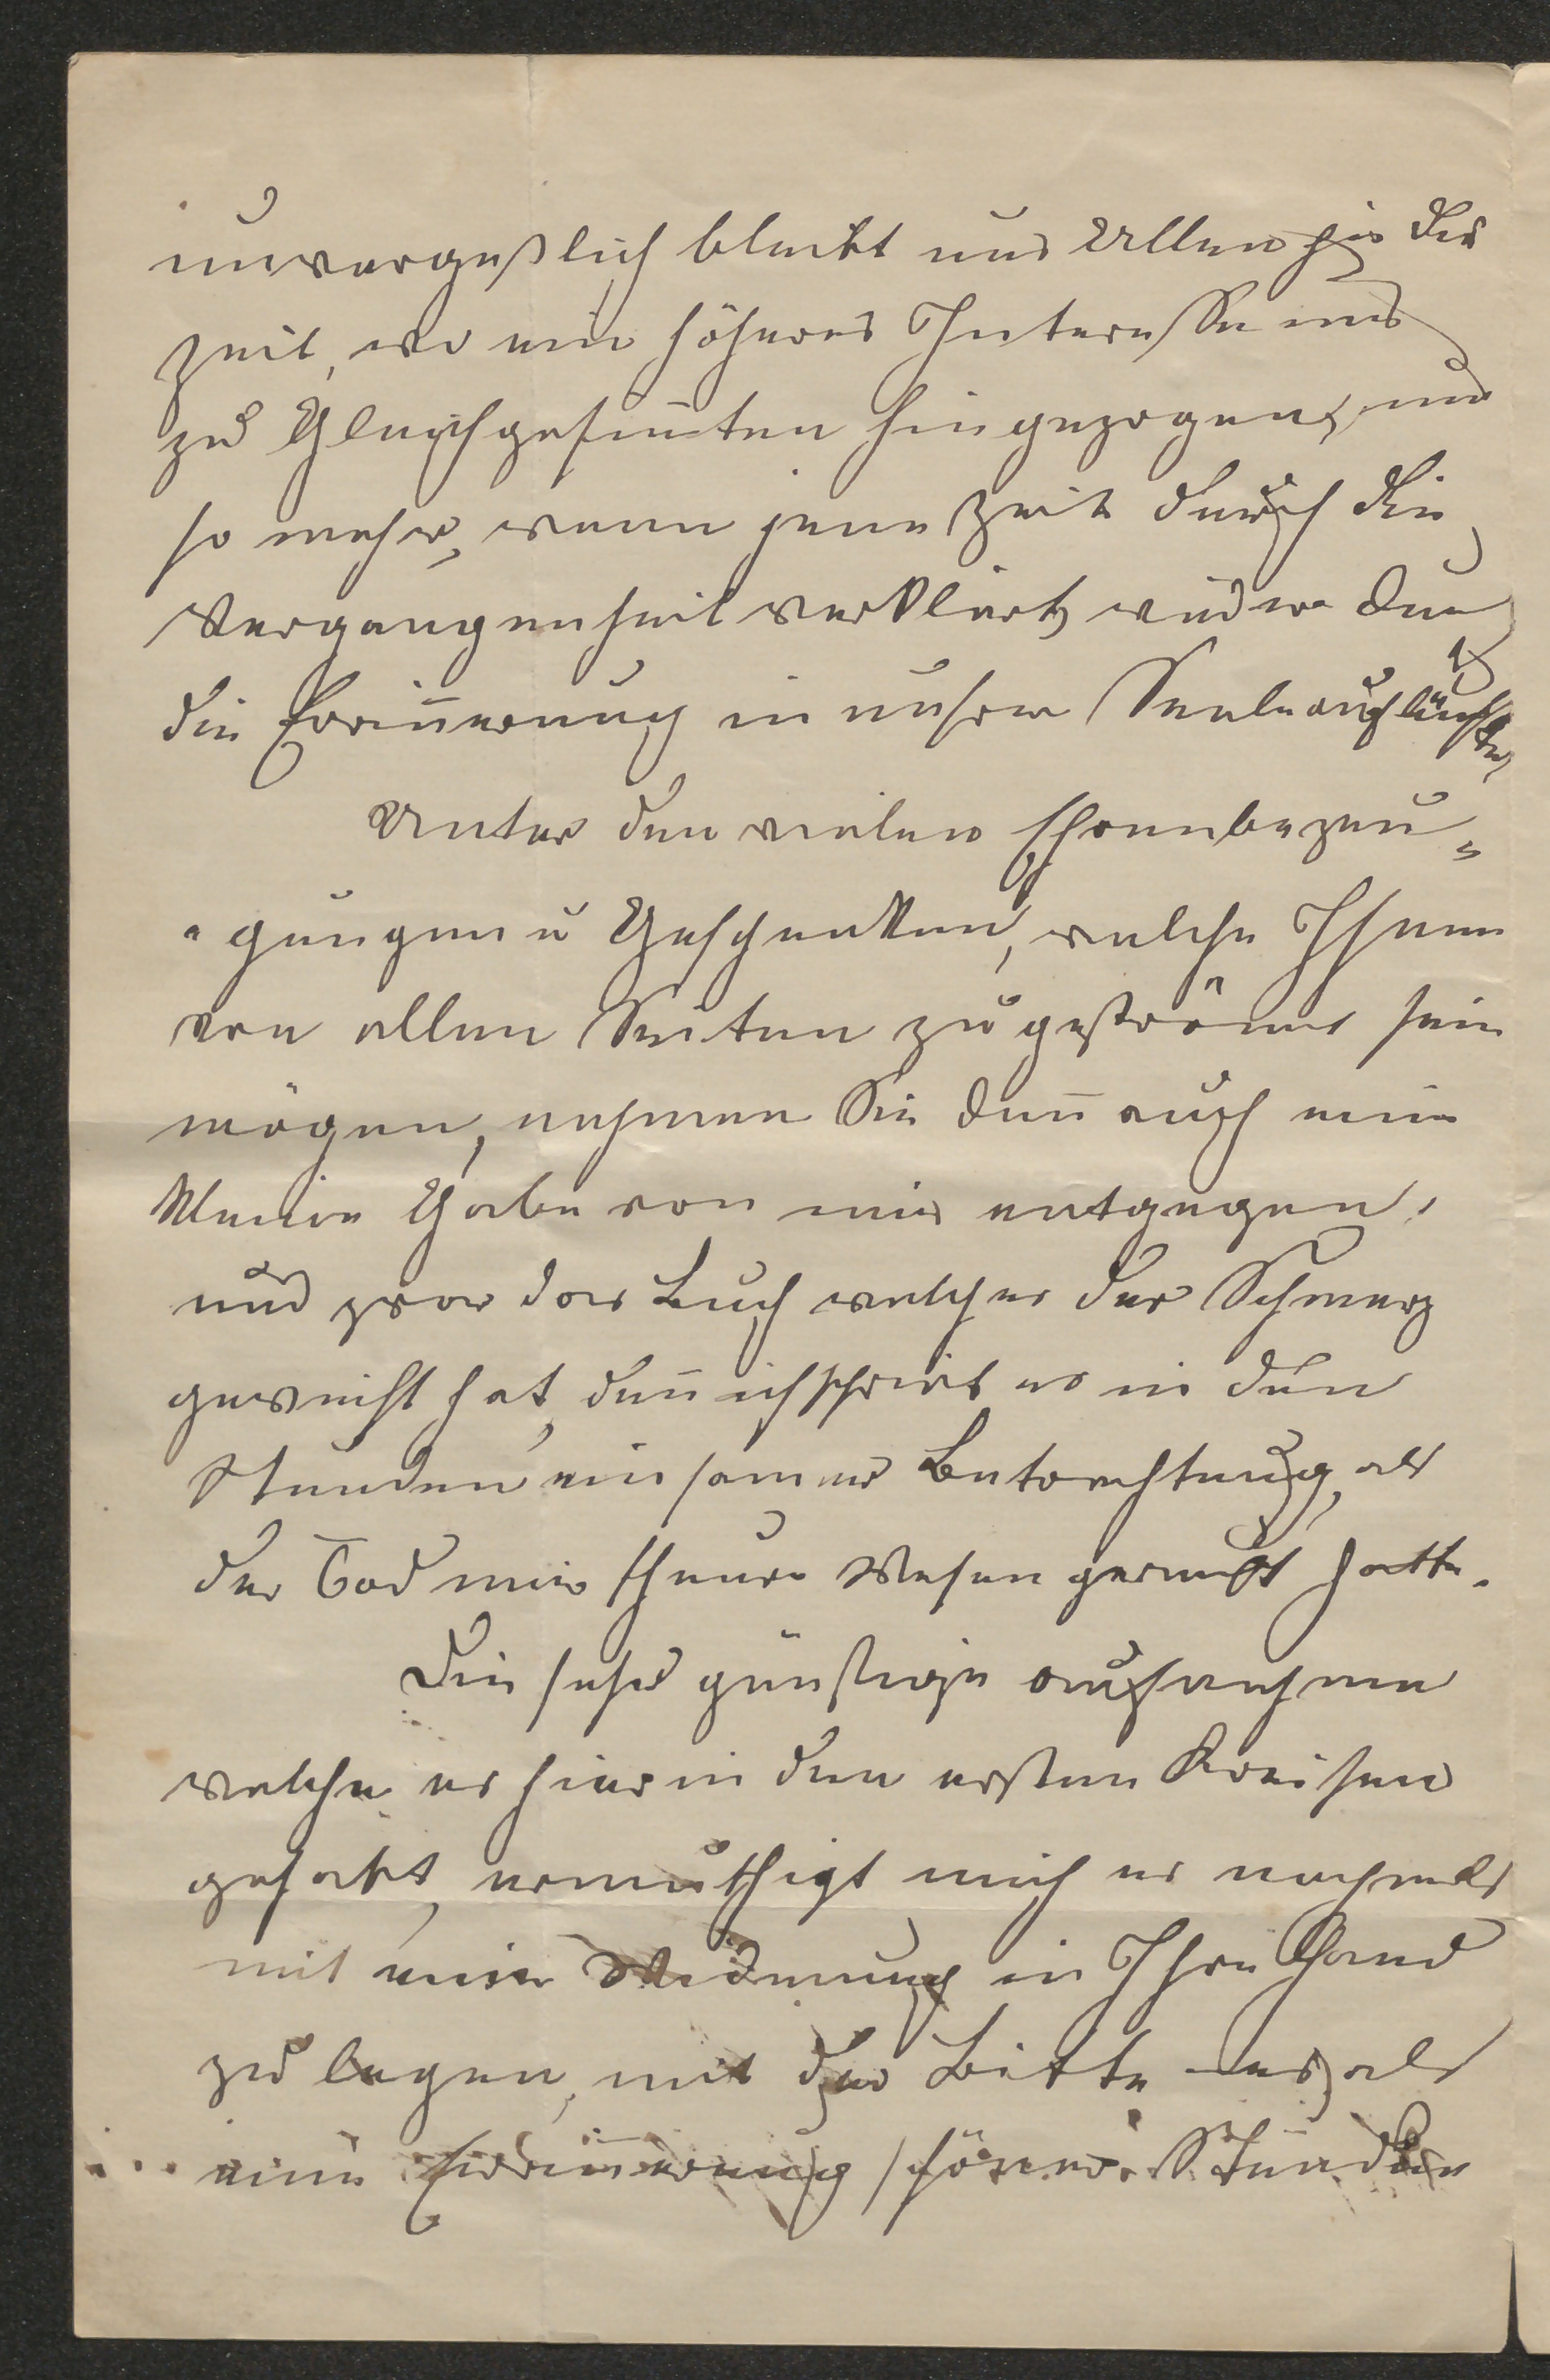 unvergeßlich bleibt uns Allen ja die
Zeit, wo ein höheres Interesse uns
zu Gleichgesiñten hingezogen, um
so mehr, wenn jene Zeit durch die
Vergangenheit verklärt, wieder
die Eriñerung in unsrer Seele auf
Unter den vielen Ehrenbezeu„
„gungen u Geschenken, welche Ihnen
von allen Seiten zugeströmt sein
mögen, nehmen Sie deñ auch eine
kleine Gabe von mir entgegen,
und zwar das Buch welches der Schmerz
geweiht hat, deñ ich schrieb es in den
Stunden einsamer Betrachtung, als
der Tod mir theure Wesen geraubt hatte.
Die sehr günstige aufnahme
welche es hier in den ersten Kreisen
gehabt, ermuthigt mich es nochmals
mit einer Widmung in Ihre Hand
zu legen, mit der Bitte es als
eine Eriñerung schöner Stunden